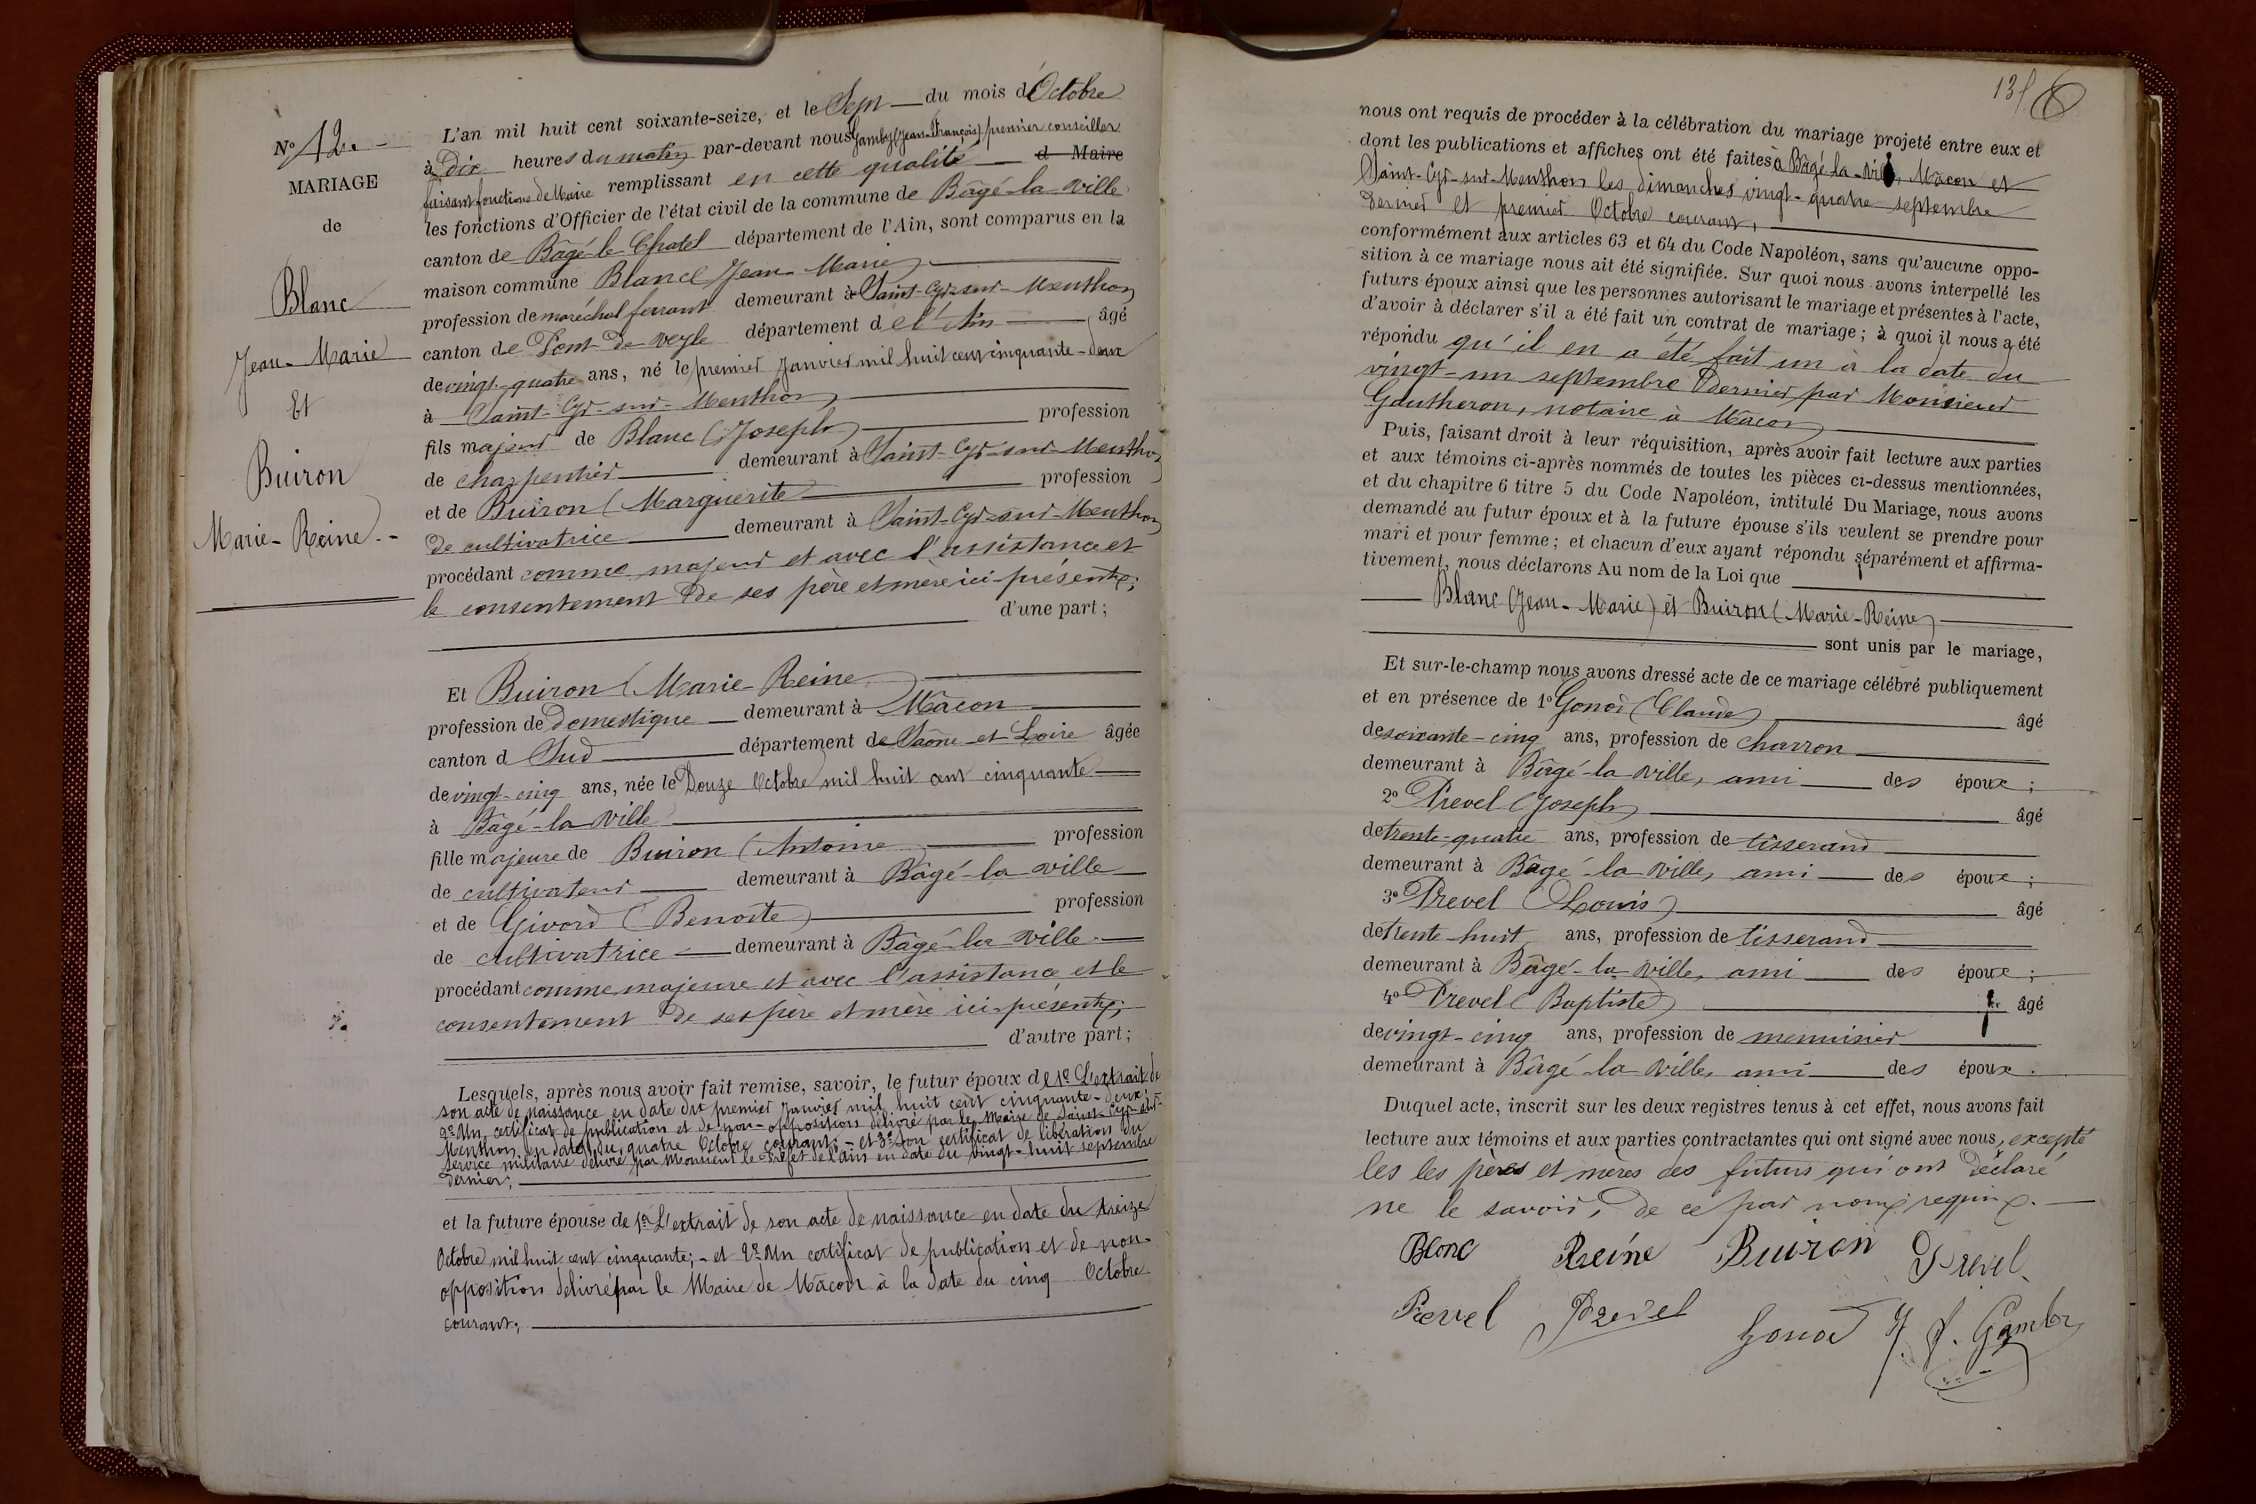 N° 12.
MARIAGE
de
Blanc
Jean-Marie
Et
Buiron
Marie-Reine.
L'an mil huit cent soixante-seize, et le Sept du mois d'Octobre
à Dix heures du matin par-devant nous Gamby (Jean-François) premier conseiller
faisant fonctions de Maire remplissant en cette qualité d Maire
les fonctions d'Officier de l'état civil de la commune de Bâgé-la-Ville
canton de Bâgé-le-Chatel département de l'Ain, sont comparus en la
maison commune Blanc (Jean-Marie)
profession de maréchal ferrant demeurant à Saint-Cyr-sur-Menthon
canton de Pont-de-Veyle département de l'Ain âgé
de vingt-quatre ans, né le premier Janvier mil huit cent cinquante-deux
à Saint-Cyr-sur-Menthon,
fils majeur de Blanc (Joseph) profession
de charpentier demeurant à Saint-Cyr-sur-Menthon
et de Buiron (Marguerite) profession
de cultivatrice demeurant à Saint-Cyr-sur-Menthon
procédant comme majeur et avec l'assistance et
le consentement de ses père et mère ici présents;
d'une part;
Et Buiron (Marie-Reine)
profession de domestique demeurant à Mâcon
canton d Sud département de Saône-et-Loire âgée
de vingt-cinq ans, née le Douze Octobre mil huit cent cinquante
à Bâgé-la-Ville
fille majeure de Buiron (Antoine) profession
de cultivateur demeurant à Bâgé-la-Ville
et de Givord (Benoîte) profession
de cultivatrice demeurant à Bâgé-la-Ville
procédant comme majeure et avec l'assistance et le
consentement de ses père et mère ici présents;
d'autre part;
Lesquels, après nous avoir fait remise, savoir, le futur époux de 1° L'extrait de
son acte de naissance en date du premier Janvier mil huit cent cinquante-deux;
2° Un certificat de publication et de non-opposition délivré par le Maire de Saint-Cyr-sur-
Menthon en date du quatre Octobre courant; - et 3° Son certificat de libération du
service militaire délivré par Monsieur le Préfet de l'Ain en date du vingt-huit septembre
dernier;
et la future épouse de 1° L'extrait de son acte de naissance en date du treize
Octobre mil huit cent cinquante; - et 2° Un certificat de publication et de non-
opposition délivré par le Maire de Mâcon à la date du cinq Octobre
courant;
nous ont requis de procéder à la célébration du mariage projeté entre eux et
dont les publications et affiches ont été faites à Bâgé-la-Ville, Mâcon et
Saint-Cyr-sur-Menthon les dimanches vingt-quatre septembre
dernier et premier Octobre courant,
conformément aux articles 63 et 64 du Code Napoléon, sans qu'aucune oppo-
sition à ce mariage nous ait été signifiée. Sur quoi nous avons interpellé les
futurs époux ainsi que les personnes autorisant le mariage et présentes à l'acte,
d'avoir à déclarer s'il a été fait un contrat de mariage; à quoi il nous a été
répondu qu'il en a été fait un à la date du
vingt-un septembre dernier par Monsieur
Gautheron, notaire à Mâcon
Puis, faisant droit à leur réquisition, après avoir fait lecture aux parties
et aux témoins ci-après nommés de toutes les pièces ci-dessus mentionnées,
et du chapitre 6 titre 5 du Code Napoléon, intitulé Du Mariage, nous avons
demandé au futur époux et à la future épouse s'ils veulent se prendre pour
mari et pour femme; et chacun d'eux ayant répondu séparément et affirma-
tivement, nous déclarons Au nom de la Loi que
Blanc (Jean-Marie) et Buiron (Marie-Reine)
sont unis par le mariage,
Et sur-le-champ nous avons dressé acte de ce mariage célébré publiquement
et en présence de 1° Gonod (Claude) âgé
de soixante-cinq ans, profession de charron
demeurant à Bâgé-la-Ville, ami des époux;
2° Prevel (Joseph) âgé
de trente-quatre ans, profession de tisserand
demeurant à Bâgé-la-Ville, ami des époux;
3° Prevel (Louis) âgé
de trente-huit ans, profession de tisserand
demeurant à Bâgé-la-Ville, ami des époux;
4° Prevel (Baptiste) âgé
de vingt-cinq ans, profession de menuisier
demeurant à Bâgé-la-Ville, ami des époux.
Duquel acte, inscrit sur les deux registres tenus à cet effet, nous avons fait
lecture aux témoins et aux parties contractantes qui ont signé avec nous, excepté
les les pères et mères des futurs qui ont déclaré
ne le savoir, de ce par nous requis.
Blanc Reine Buiron Prevel
Prevel Prevel Gonod J. f. Gamby